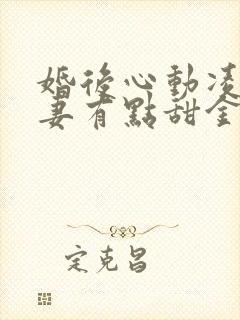 婚後心動凌
妻有點甜全
定克昌